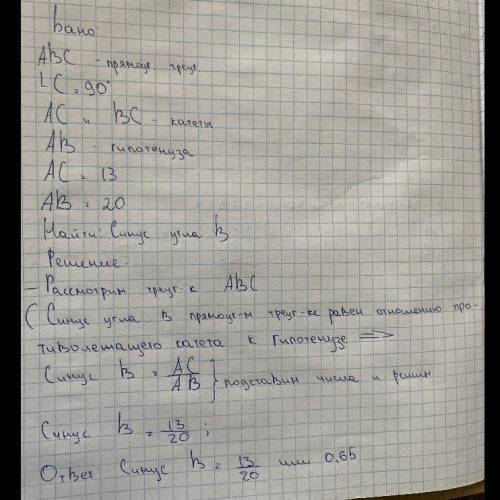 Дано:
ABC - прямоуг. треуг.
∟C = 90°
AC и BC - катеты
AB - гипотенуза
AC = 13
AB = 20
Найти: Синус угла B
Решение:
— Рассмотрим треуг-к ABC
( Синус угла в прямоуг-м треуг-ке равен отношению про-
тиволежащего катета к гипотенузе =>
Синус B = AC/AB } подставим числа и решим
Синус B = 13/20 ;
Ответ: Синус B = 13/20 или 0.65